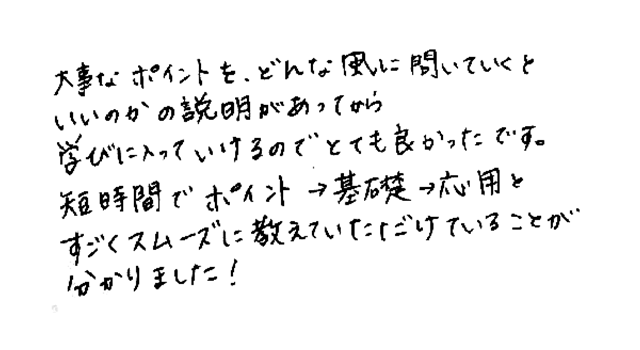 大事なポイントを、どんな風に問いていくと
いいのかの説明があってから
学びに入っていけるのでとても良かったです。
短時間でポイント→基礎→応用と
すごくスムーズに教えていただけていることが
分かりました!